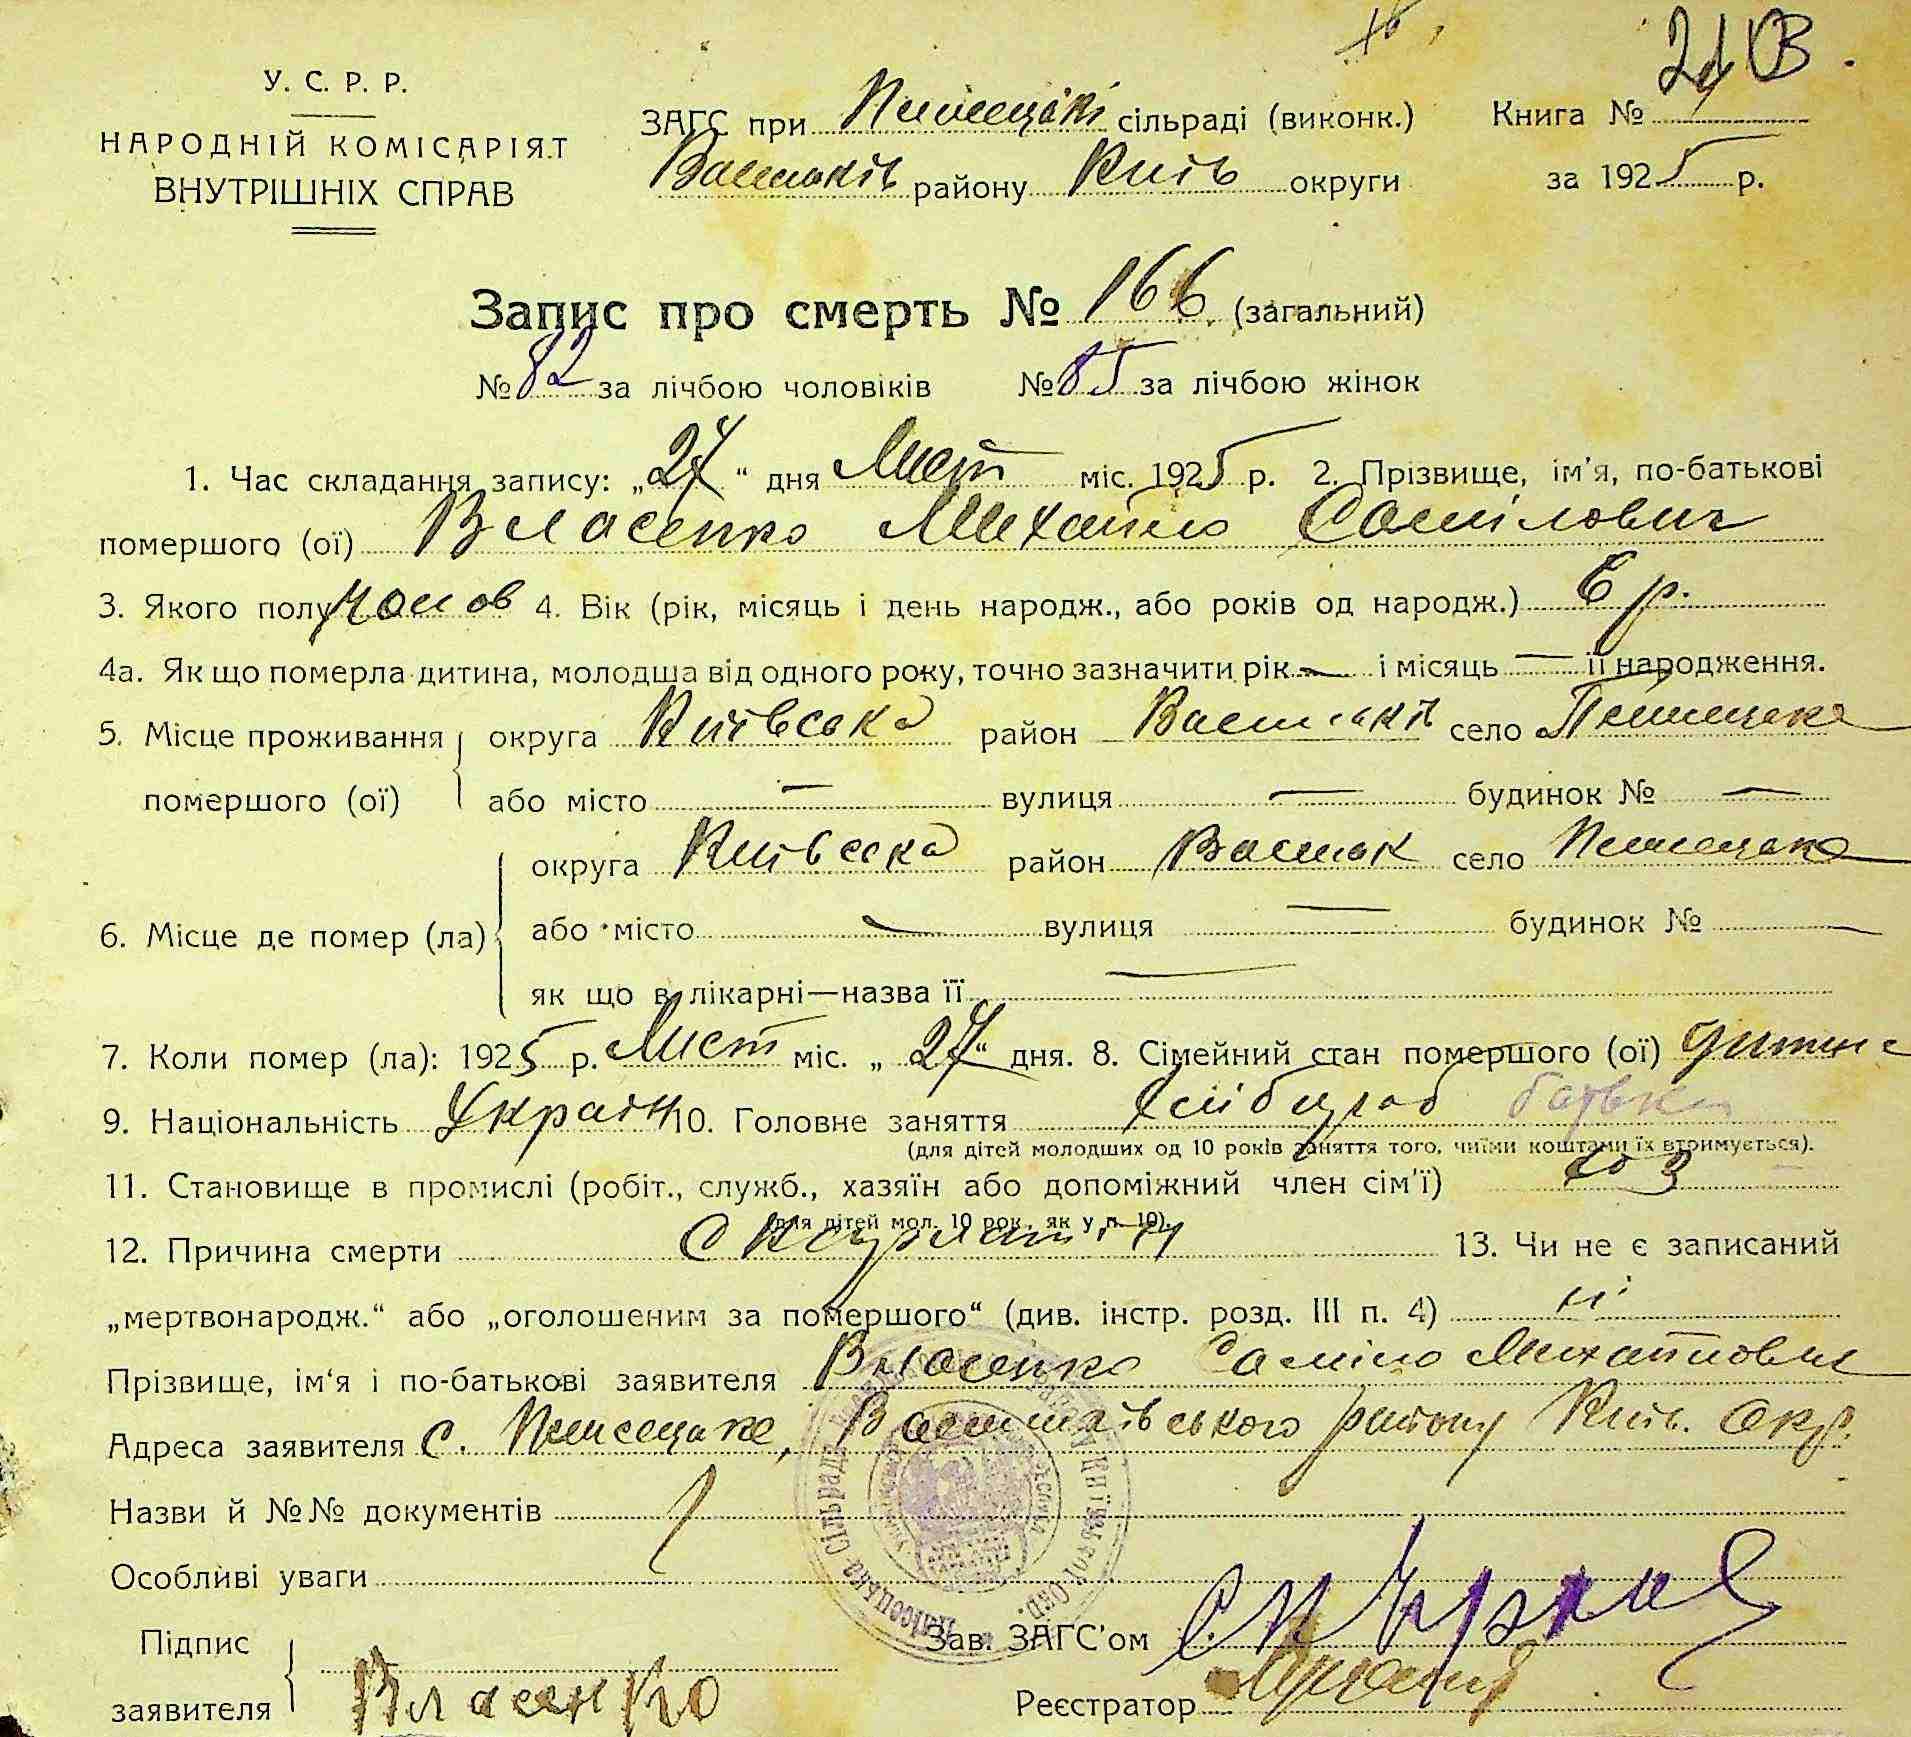 У. С. Р. Р.
НАРОДНІЙ КОМІСАРІЯТ
ВНУТРІШНІХ СПРАВ
ЗАГС при сільраді (виконк.)
Васильків району Київ округи
Книга № 21
за 1925 р.
Запис про смерть № 166 (загальний)
№ 82 за лічбою чоловіків № 85 за лічбою жінок
1. Час складання запису: „27“ дня Лист міс. 1925 р. 2. Прізвище, ім'я, по-батькові
помершого (ої) Власенко Михайло Самілович
3. Якого полу чолов 4. Вік (рік, місяць і день народж., або років од народж.) 6 р.
4а. Як що померла дитина, молодша від одного року, точно зазначити рік — і місяць — її народження.
5. Місце проживання округа Київська район Васильків село
помершого (ої) або місто — вулиця — будинок № —
округа Київська район Васильк село
6. Місце де помер (ла) або місто — вулиця — будинок № —
як що в лікарні—назва її —
7. Коли помер (ла): 1925 р. Лист міс. „27“ дня. 8. Сімейний стан помершого (ої) дитина
9. Національність Україн 10. Головне заняття Хлібороб батька
(для дітей молодших од 10 років заняття того, чиїми коштами їх втримується).
11. Становище в промислі (робіт., служб., хазяїн або допоміжний член сім'ї) хоз
(для дітей мол. 10 рок. як у п. 10).
12. Причина смерти Скарлатин 13. Чи не є записаний
„мертвонародж.“ або „оголошеним за помершого“ (див. інстр. розд. III п. 4) ні
Прізвище, ім'я і по-батькові заявителя Власенко Саміло Михайлович
Адреса заявителя с. Васильківського району Київ. Окр.
Назви й №№ документів
Особливі уваги
Підпис
заявителя Власенко
Зав. ЗАГС'ом
Реєстратор